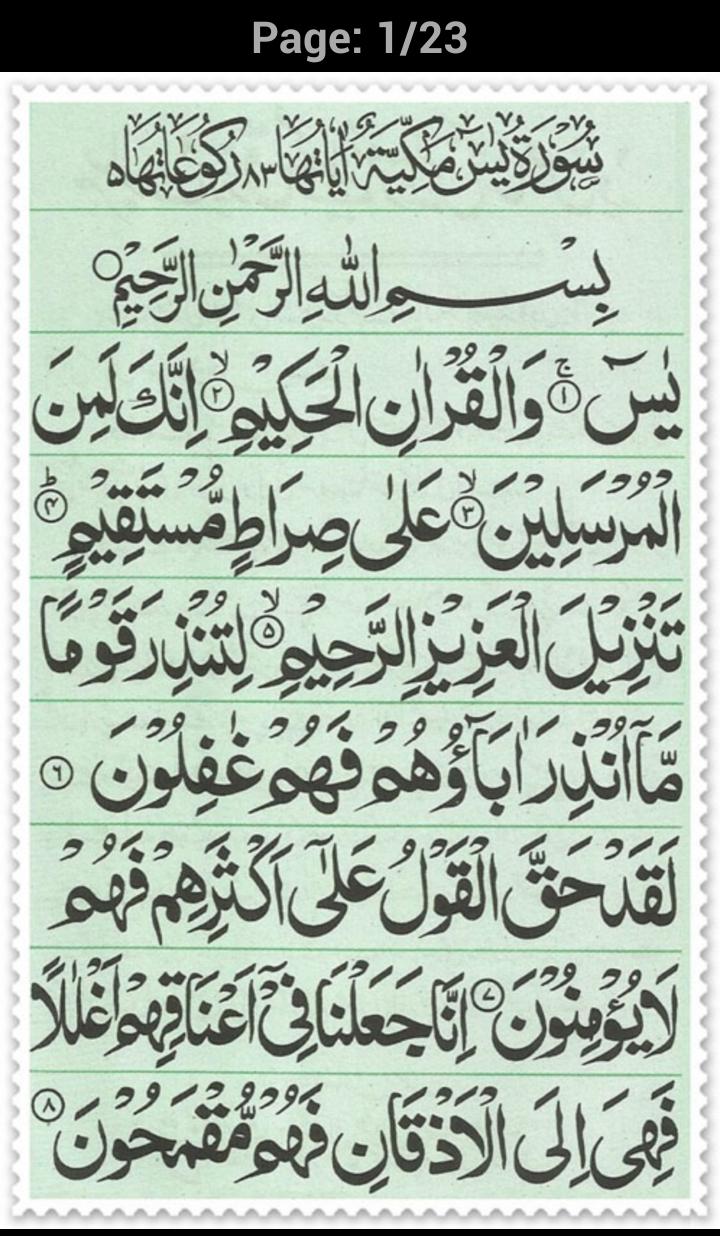 Page: 1/23
سُوْرَةُ يٰسٓ مَكِّيَّةٌ اٰيَاتُهَا ٨٣ رُكُوْعَاتُهَا ٥
بِسْمِ اللّٰهِ الرَّحْمٰنِ الرَّحِيْمِ ۝
يٰسٓ ۚ﴿١﴾ وَالْقُرْاٰنِ الْحَكِيْمِ ۙ﴿٢﴾ اِنَّكَ لَمِنَ
الْمُرْسَلِيْنَ ۙ﴿٣﴾ عَلٰى صِرَاطٍ مُّسْتَقِيْمٍ ؕ﴿۴﴾
تَنْزِيْلَ الْعَزِيْزِ الرَّحِيْمِ ۙ﴿۵﴾ لِتُنْذِرَ قَوْمًا
مَّاۤ اُنْذِرَ اٰبَآؤُهُمْ فَهُمْ غٰفِلُوْنَ ﴿٦﴾
لَقَدْ حَقَّ الْقَوْلُ عَلٰۤى اَكْثَرِهِمْ فَهُمْ
لَا يُؤْمِنُوْنَ ﴿٧﴾ اِنَّا جَعَلْنَا فِيْۤ اَعْنَاقِهِمْ اَغْلٰلًا
فَهِيَ اِلَى الْاَذْقَانِ فَهُمْ مُّقْمَحُوْنَ ﴿٨﴾